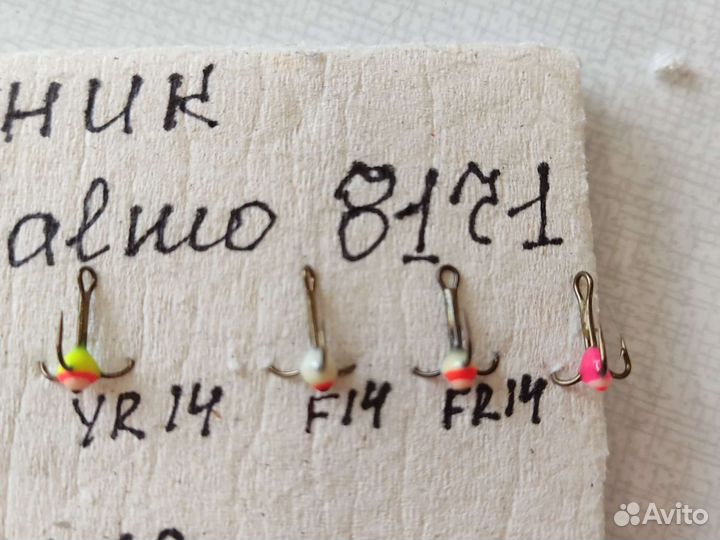 ник
almo 8171
YR14 F14 FR14
Avito